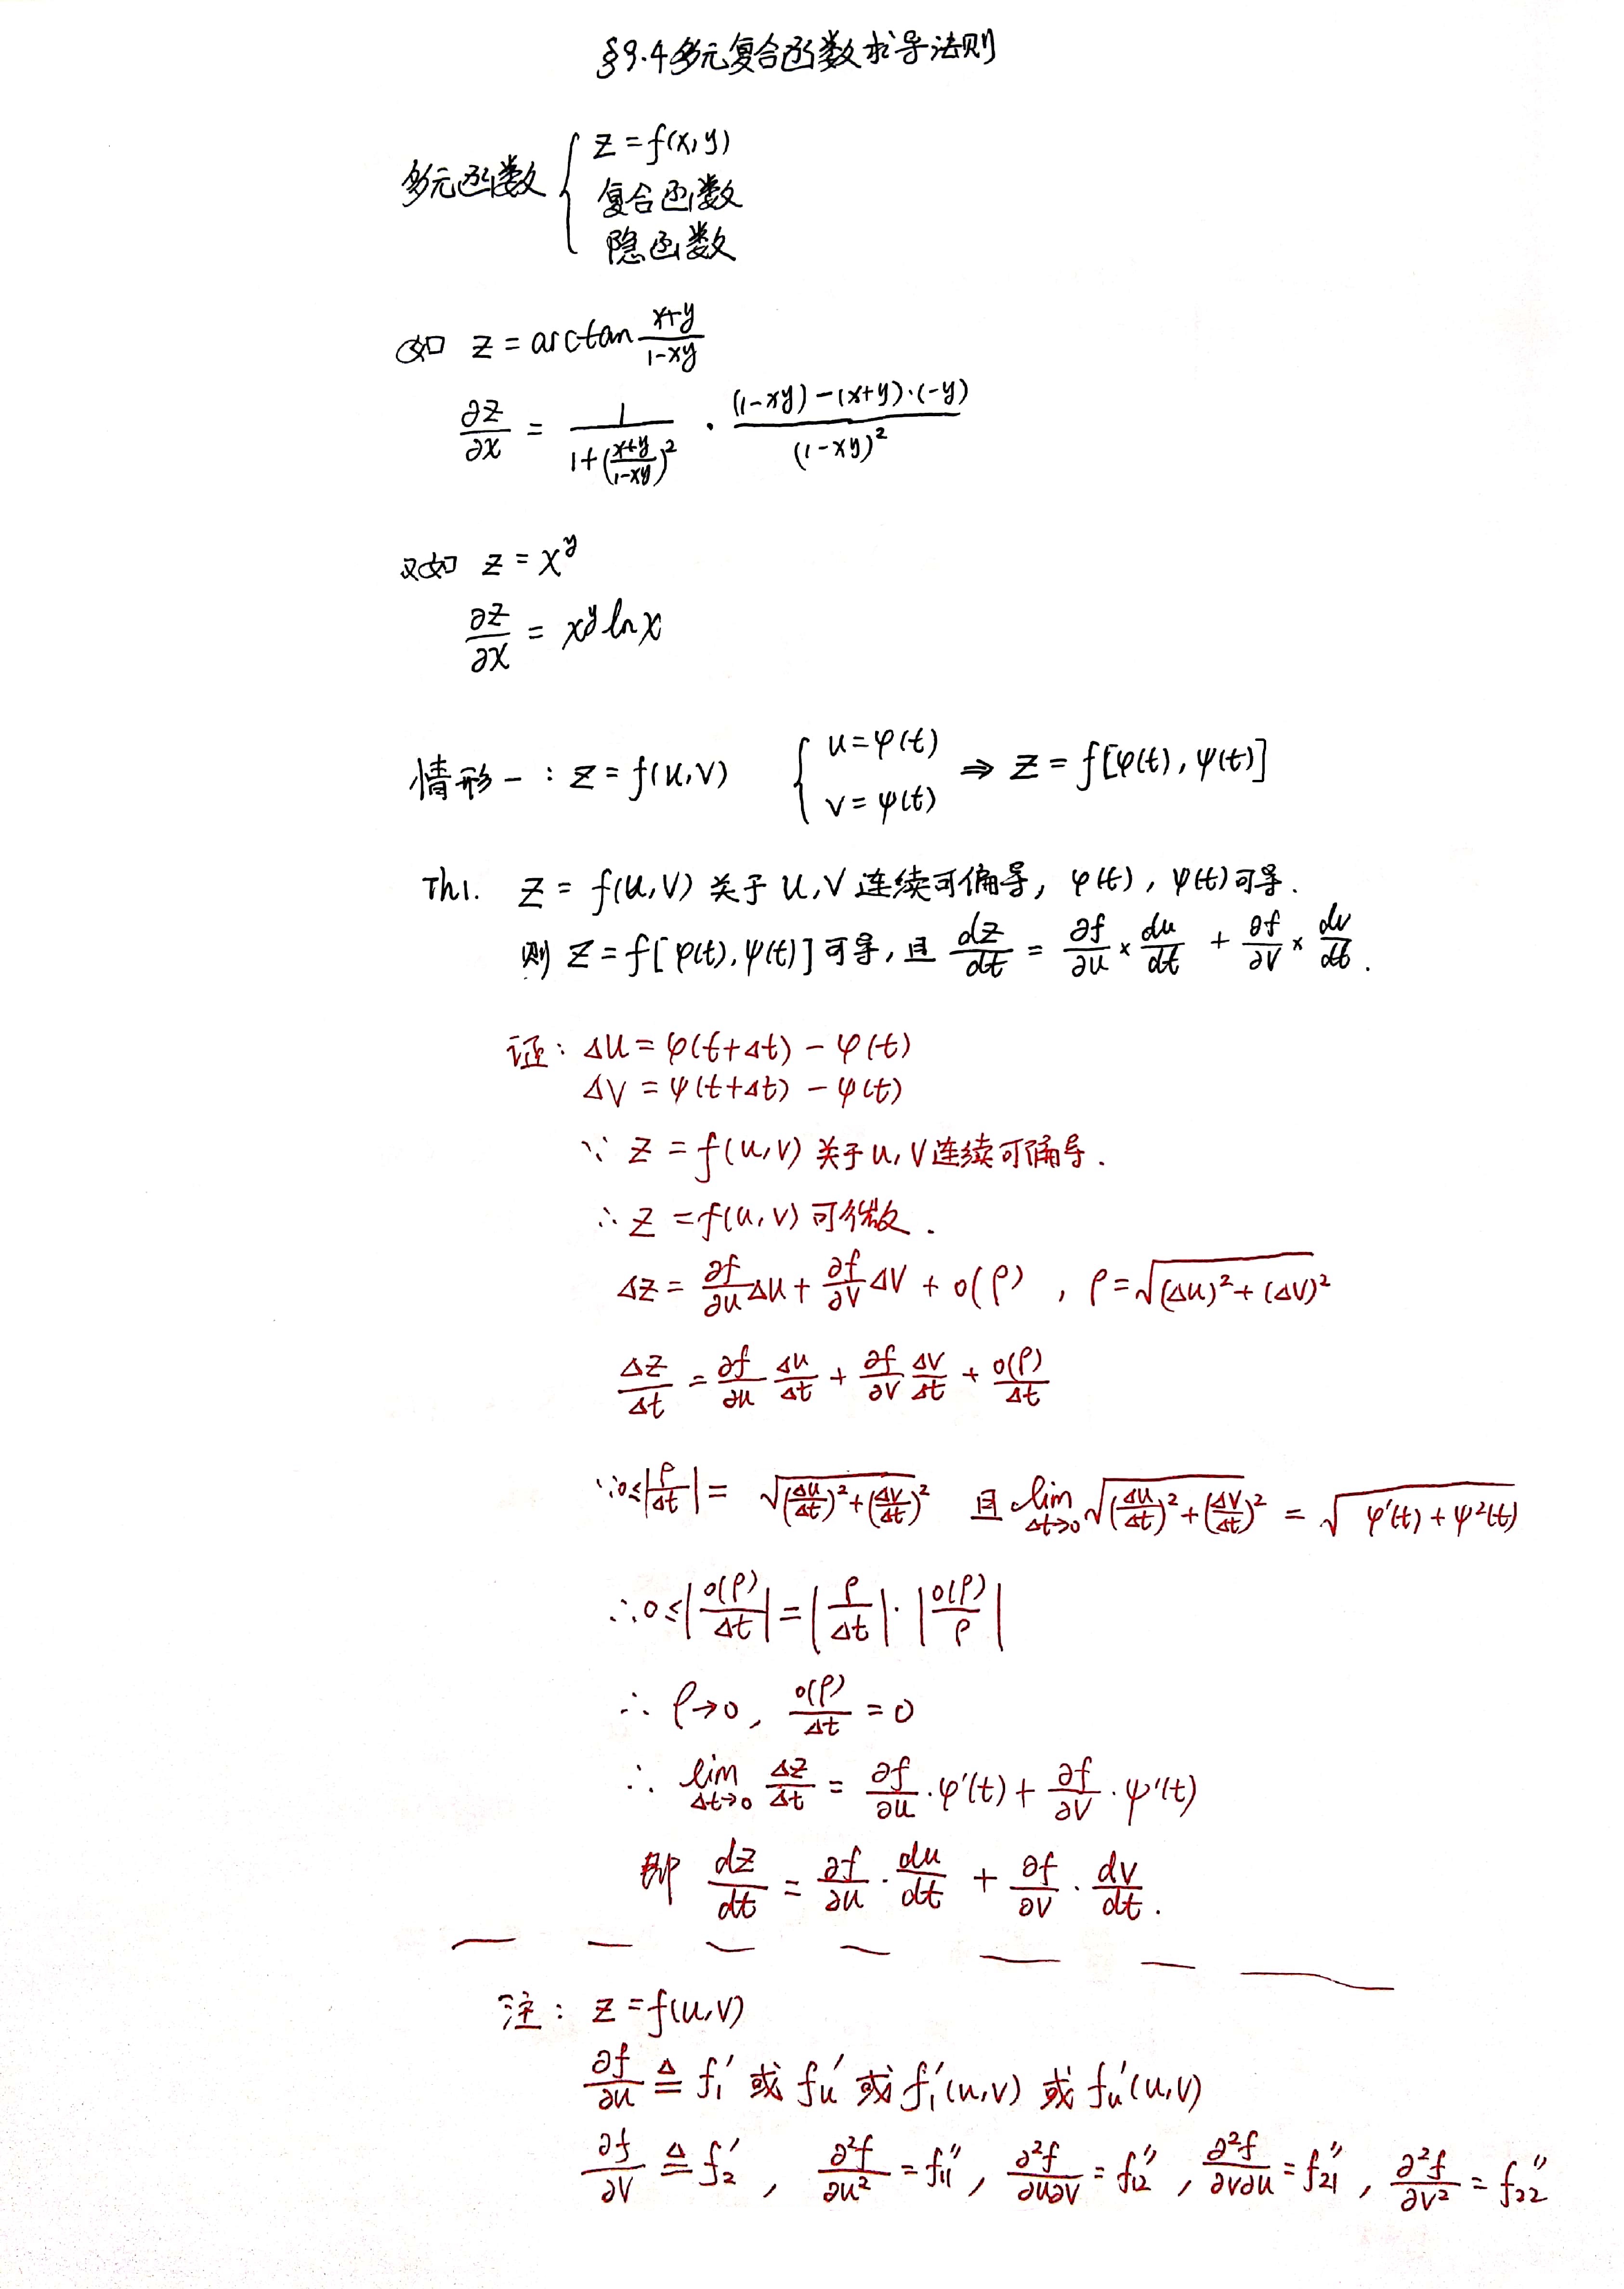 §9.4多元复合函数求导法则
多元函数 { z = f(x,y)
复合函数
隐函数
如 z = arctan (x+y)/(1-xy)
∂z/∂x = 1/(1+((x+y)/(1-xy))²) · ((1-xy)-(x+y)·(-y))/(1-xy)²
又如 z = x^y
∂z/∂x = x^y ln x
情形一：z = f(u,v) { u = φ(t) v = ψ(t) ⇒ z = f[φ(t), ψ(t)]
Th1. z = f(u,v) 关于 u,v 连续可偏导, φ(t), ψ(t)可导.
则 z = f[φ(t),ψ(t)] 可导, 且 dz/dt = ∂f/∂u × du/dt + ∂f/∂v × dv/dt .
证: Δu = φ(t+Δt) - φ(t)
Δv = ψ(t+Δt) - ψ(t)
∵ z = f(u,v) 关于 u,v 连续可偏导.
∴ z = f(u,v) 可微.
Δz = ∂f/∂u Δu + ∂f/∂v Δv + o(ρ) , ρ = √((Δu)² + (Δv)²)
Δz/Δt = ∂f/∂u Δu/Δt + ∂f/∂v Δv/Δt + o(ρ)/Δt
∵ 0≤|ρ/Δt| = √((Δu/Δt)² + (Δv/Δt)²) 且 lim Δt→0 √((Δu/Δt)² + (Δv/Δt)²) = √(φ'(t) + ψ²(t))
∴ 0≤|o(ρ)/Δt| = |ρ/Δt| · |o(ρ)/ρ|
∴ ρ→0, o(ρ)/Δt = 0
∴ lim Δt→0 Δz/Δt = ∂f/∂u · φ'(t) + ∂f/∂v · ψ'(t)
即 dz/dt = ∂f/∂u · du/dt + ∂f/∂v · dv/dt .
注: z = f(u,v)
∂f/∂u ≜ f₁' 或 fᵤ' 或 f₁'(u,v) 或 fᵤ'(u,v)
∂f/∂v ≜ f₂' , ∂²f/∂u² = f₁₁'' , ∂²f/∂u∂v = f₁₂'' , ∂²f/∂v∂u = f₂₁'' , ∂²f/∂v² = f₂₂''